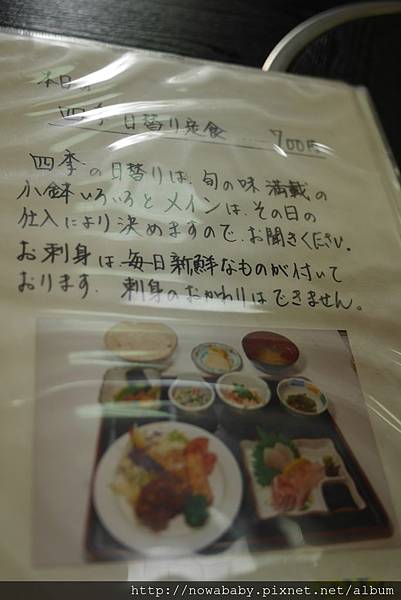 本日の
四季 日替り定食 ...... 700円
四季の日替りは、旬の味満載の
小鉢いろいろとメインは、その日の
仕入により決めますので、お聞きください。
お刺身は、毎日新鮮なものが付いて
おります. 刺身のおかわりはできません。
http://nowababy.pixnet.net/album